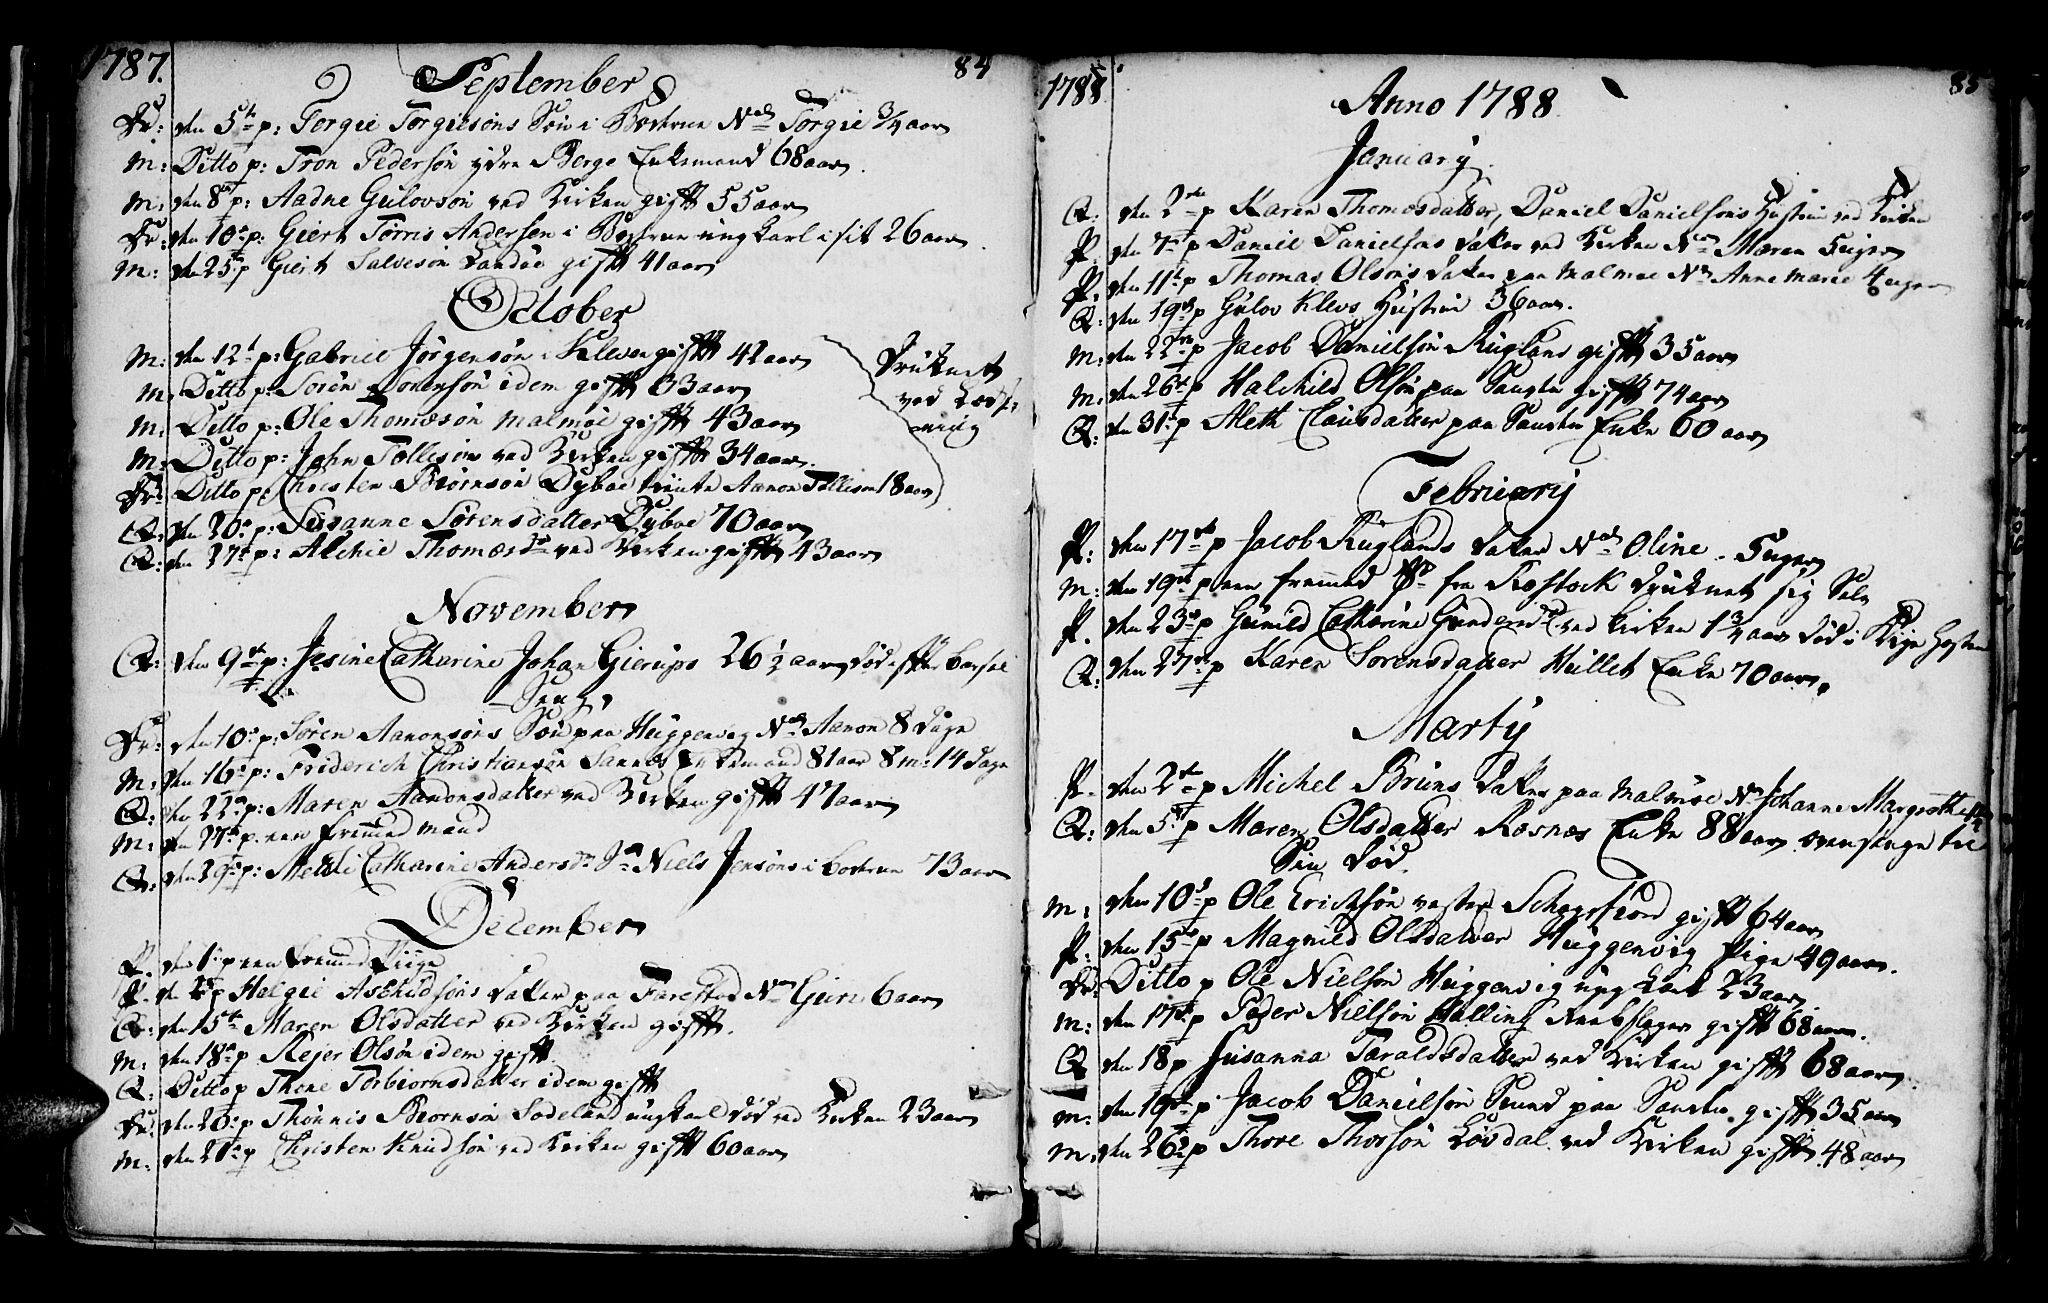 1787.
84
September
Dr: den 5te p: Torgie Torgiesøns Søn i Bechrue Nal Torgie 3/4 aar
M: Ditto p: Tron Pedersøn ydre Berge Enkemand 68 aar.
M: den 8de p: Aadne Gulovsøn ved Kirken gifft 55 aar
Dr: den 10de p: Giert Tørris Andersen i ungkarl i sit 26 aar.
M: den 25de p Giert Salvesøn Sandøe gifft 41 aar
October
M: den 12te p: Gabriel Jørgensøn i Kleven gifft 42 aar
M: Ditto p: Søren Sørensøn idem gifft 63 aar
M: Ditto p: Ole Thomæsøn Malmøe gifft 43 aar
M: Ditto p: John Tollesøn ved Kirken gifft 34 aar.
Dr: Ditto p: Christen Biørnsøn Dyboe tiente Aanon Tollisøn 18 aar
Druknet
ved Lods-
ning
Q: den 20de p: Susanne Sørensdatter Dyboe 70 aar
Q: den 27de p: Alchie Thomæsdr ved Kirken gifft 43 aar
November
Q: den 9de p: Jesine Catharine Johan Gierups 26 1/2 aar død efter barsel
Seng.
Dr: den 10de p: Søren Aanonsøns Søn paa Huggenvig Nal Aanon 8 dage
M: den 16de p: Friderich Christiansøn Sannes Enkemand 81 aar 8 m: 14 dage
Q: den 22de p: Maren Aanonsdatter ved Kirken gifft 47 aar
M: den 27de p. een fremmed mand
Q: den 29de p: Mette Catharine Andersdr Niels Jensøns i 73 aar
December
P. den 1te p een fremmed Piige
P. d 2de p Helgie Aschildsøns datter paa Farestad Nn Guri 6 aar
Q: den 15de Maren Olsdatter ved Kirken gifft.
M: den 18de p Rejer Olsøn idem gifft
Q: Ditto p Thone Torbiornsdatter idem gifft
Dr: den 20de p: Thønnis Biørnsøn ungkarl død ved Kirken 23 aar
M: den 21de p Christen Knudsøn ved Kirken gifft 60 aar
1788.
85
Anno 1788.
January.
Q: den 2de p Karen Thomasdatter, Daniel Danielsøns Hustrue ved Kirken
P. den 7de p Daniel Danielsøns datter ved Kirken Nn Maren 5 uger
P. den 11te p Thomas Olsøns datter paa Malmøe Nn Anne Marie 4 uger
Q: den 19de p Gulov Klevs Hustrue 36 aar.
M: den 22de p Jacob Danielsøn Ruglans gifft 35 aar
M: den 26de p Halchild Olsøn paa Sansten gifft 74 aar
Q: den 31te p Aleth Clausdatter paa Sansten Enke 60 aar
February
P: den 17de p Jacob Ruglands datter Nal Oline. 5 uger
M: den 19de p een fremmed fra Rostock druknet sig Selv
P. den 23de p Gunild Cathrine Gundersdr ved Kirken 1 3/4 aar død i Kige Hosten
Q: den 27de p Karen Sørensdatter Hullet Enke 70 aar.
Marty
P. den 2de p Michel Bruns datter paa Malmøe Nn Johanne Margrethe
Q: den 5te p Maren Olsdatter Rosnæs Enke 88 aar sengelig
Sin død.
M: den 10de p Ole Erichsøn vester Schogsfiord gifft 64 aar
P: den 15de p Magnild Olsdatter Huggenvig Pige 49 aar.
Dr: Ditto p Ole Nielsøn Huggenvig ung karl 23 aar.
M: den 17de p Peder Nielsøn Halling Reebslager gifft 68 aar.
Q den 18 p Susanna Taraldsdatter ved Kirken gifft 68 aar.
M: den 19de p Jacob Danielsøn paa Sansten gifft 35 aar
M: den 26de p Thore Thorsøn Løvdal ved Kirken gifft 48 aar